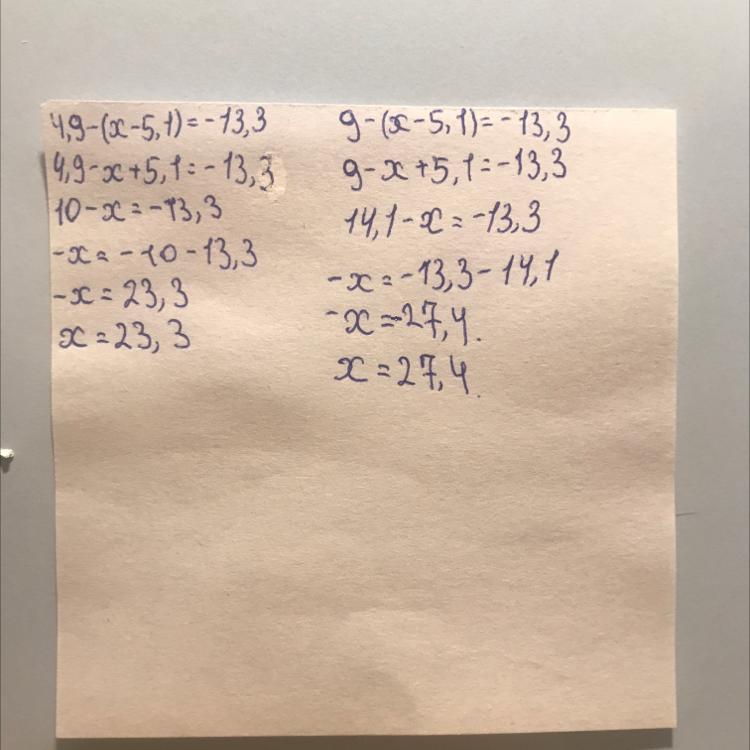 4,9-(x-5,1)=-13,3
4,9-x+5,1=-13,3
10-x=-13,3
-x=-10-13,3
-x=23,3
x=23,3
9-(x-5,1)=-13,3
9-x+5,1=-13,3
14,1-x=-13,3
-x=-13,3-14,1
-x=-27,4.
x=27,4.